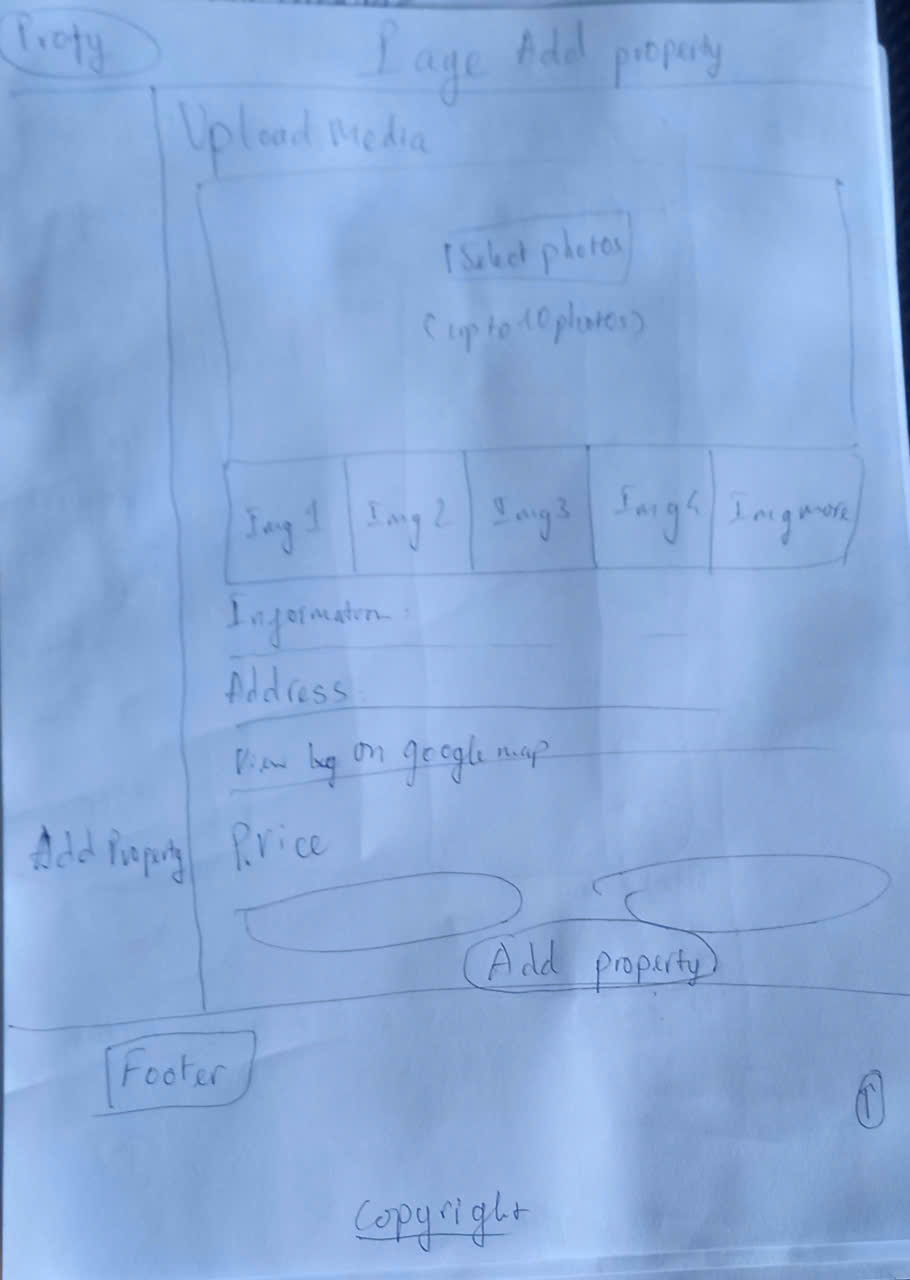 Proty
Page Add property
Upload media
Select photos
(up to 10 photos)
Img 1 Img 2 Img 3 Img 4 Img more
Information :
Address :
View on google map
Add Property
Price
Add property
Footer
↑
Copyright